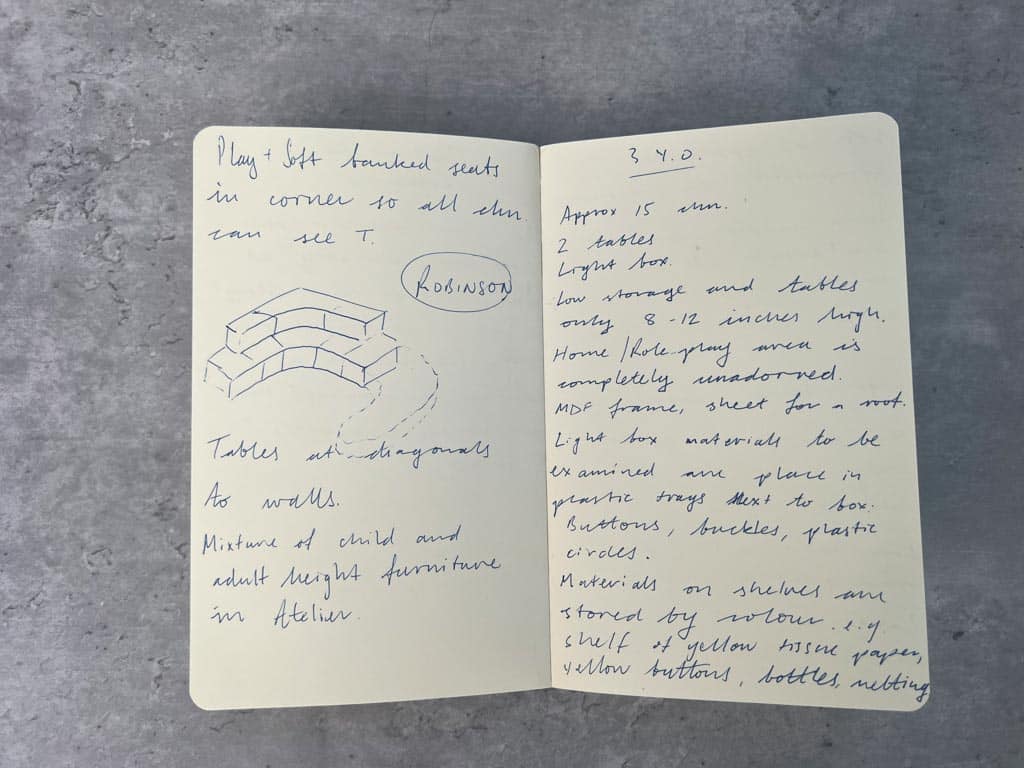 Play + Soft banked seats
in corner so all chn.
can see T.
ROBINSON
Tables at diagonals
to walls.
Mixture of child and
adult height furniture
in Atelier.
3 Y.O.
Approx 15 chn.
2 tables
Light box.
Low storage and tables
only 8-12 inches high.
Home/Role-play area is
completely unadorned.
MDF frame, sheet for a roof.
Light box materials to be
examined are place in
plastic trays next to box.
Buttons, buckles, plastic
circles.
Materials on shelves are
stored by colour. e.g.
shelf of yellow tissue paper,
yellow buttons, bottles, netting